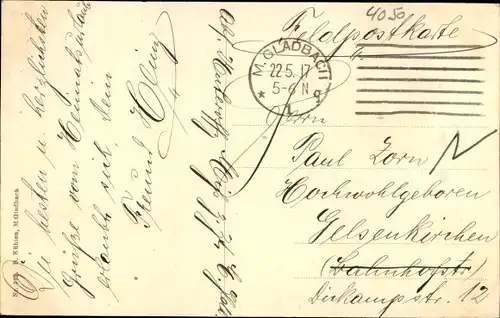 4050
Feldpostkarte
M. GLADBACH
22.5.17
5-6 N
* 1 g
Herrn
Paul Zorn
Hochwohlgeboren
Gelsenkirchen
(Bahnhofstr.)
Birkampstr. 12
Die besten u herzlichsten
Grüße vom Heimatsurlaub
erlaubt sich Dein
Freund Heinz
Abs.
B. Kühlen, M.Gladbach